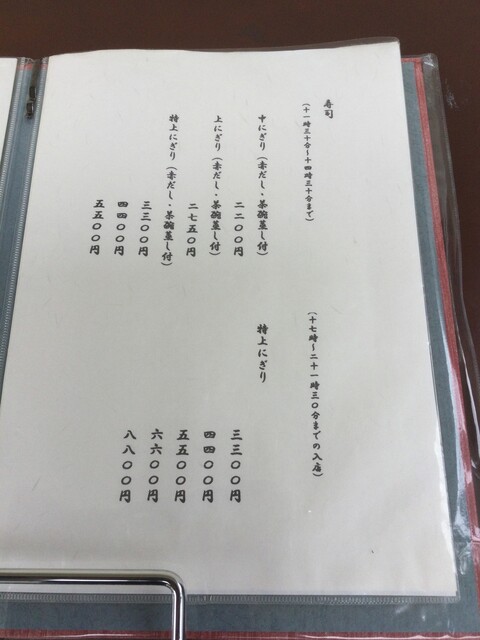 寿司
(十一時三十分~十四時三十分まで)
中にぎり(赤だし・茶碗蒸し付)
二二〇〇円
上にぎり(赤だし・茶碗蒸し付)
二七五〇円
特上にぎり(赤だし・茶碗蒸し付)
三三〇〇円
四四〇〇円
五五〇〇円
(十七時~二十一時三〇分までの入店)
特上にぎり
三三〇〇円
四四〇〇円
五五〇〇円
六六〇〇円
八八〇〇円